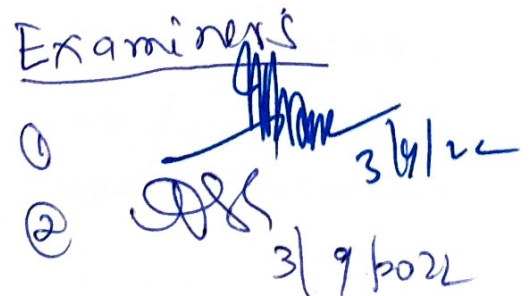 Examiners
①
3/9/22
②
3/9/2022